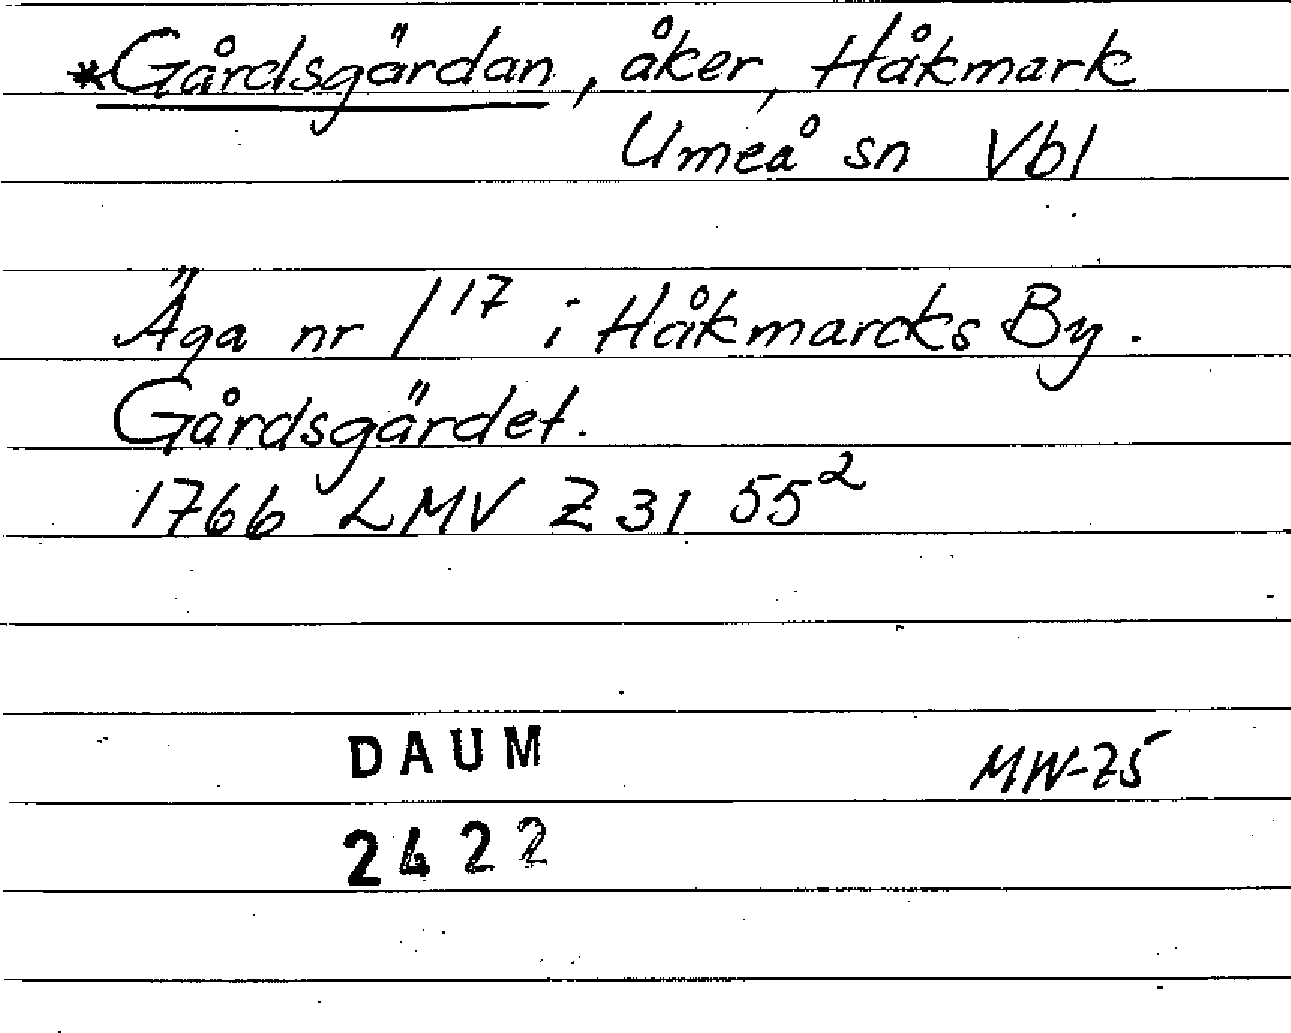 *Gårdsgärdan, åker, Håkmark
Umeå sn Vbl
Äga nr 1¹⁷ i Håkmarcks By.
Gårdsgärdet.
1766 LMV Z 31 55²
DAUM
MW-75
2422